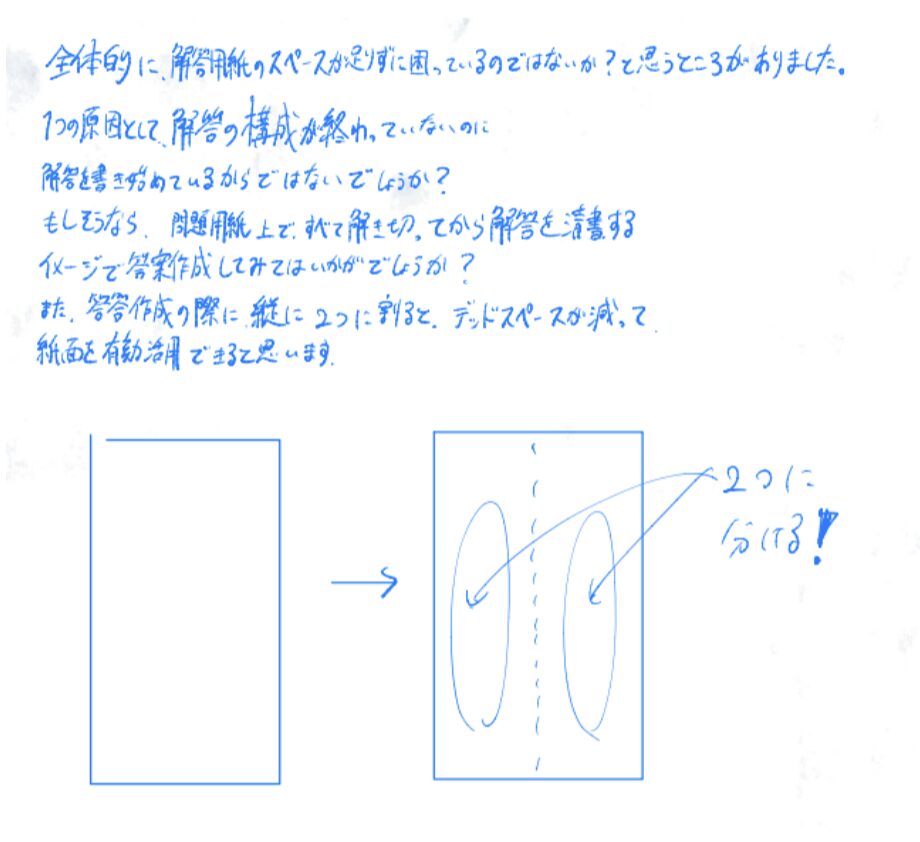 全体的に、解答用紙のスペースが足りずに困っているのではないか?と思うところがありました。
1つの原因として、解答の構成が終わっていないのに
解答を書き始めているからではないでしょうか?
もしそうなら、問題用紙上で、すべて解き切ってから解答を清書する
イメージで答案作成してみてはいかがでしょうか?
また、答答作成の際に、縦に2つに割ると、デッドスペースが減って
紙面を有効活用できると思います。
2つに
分ける!